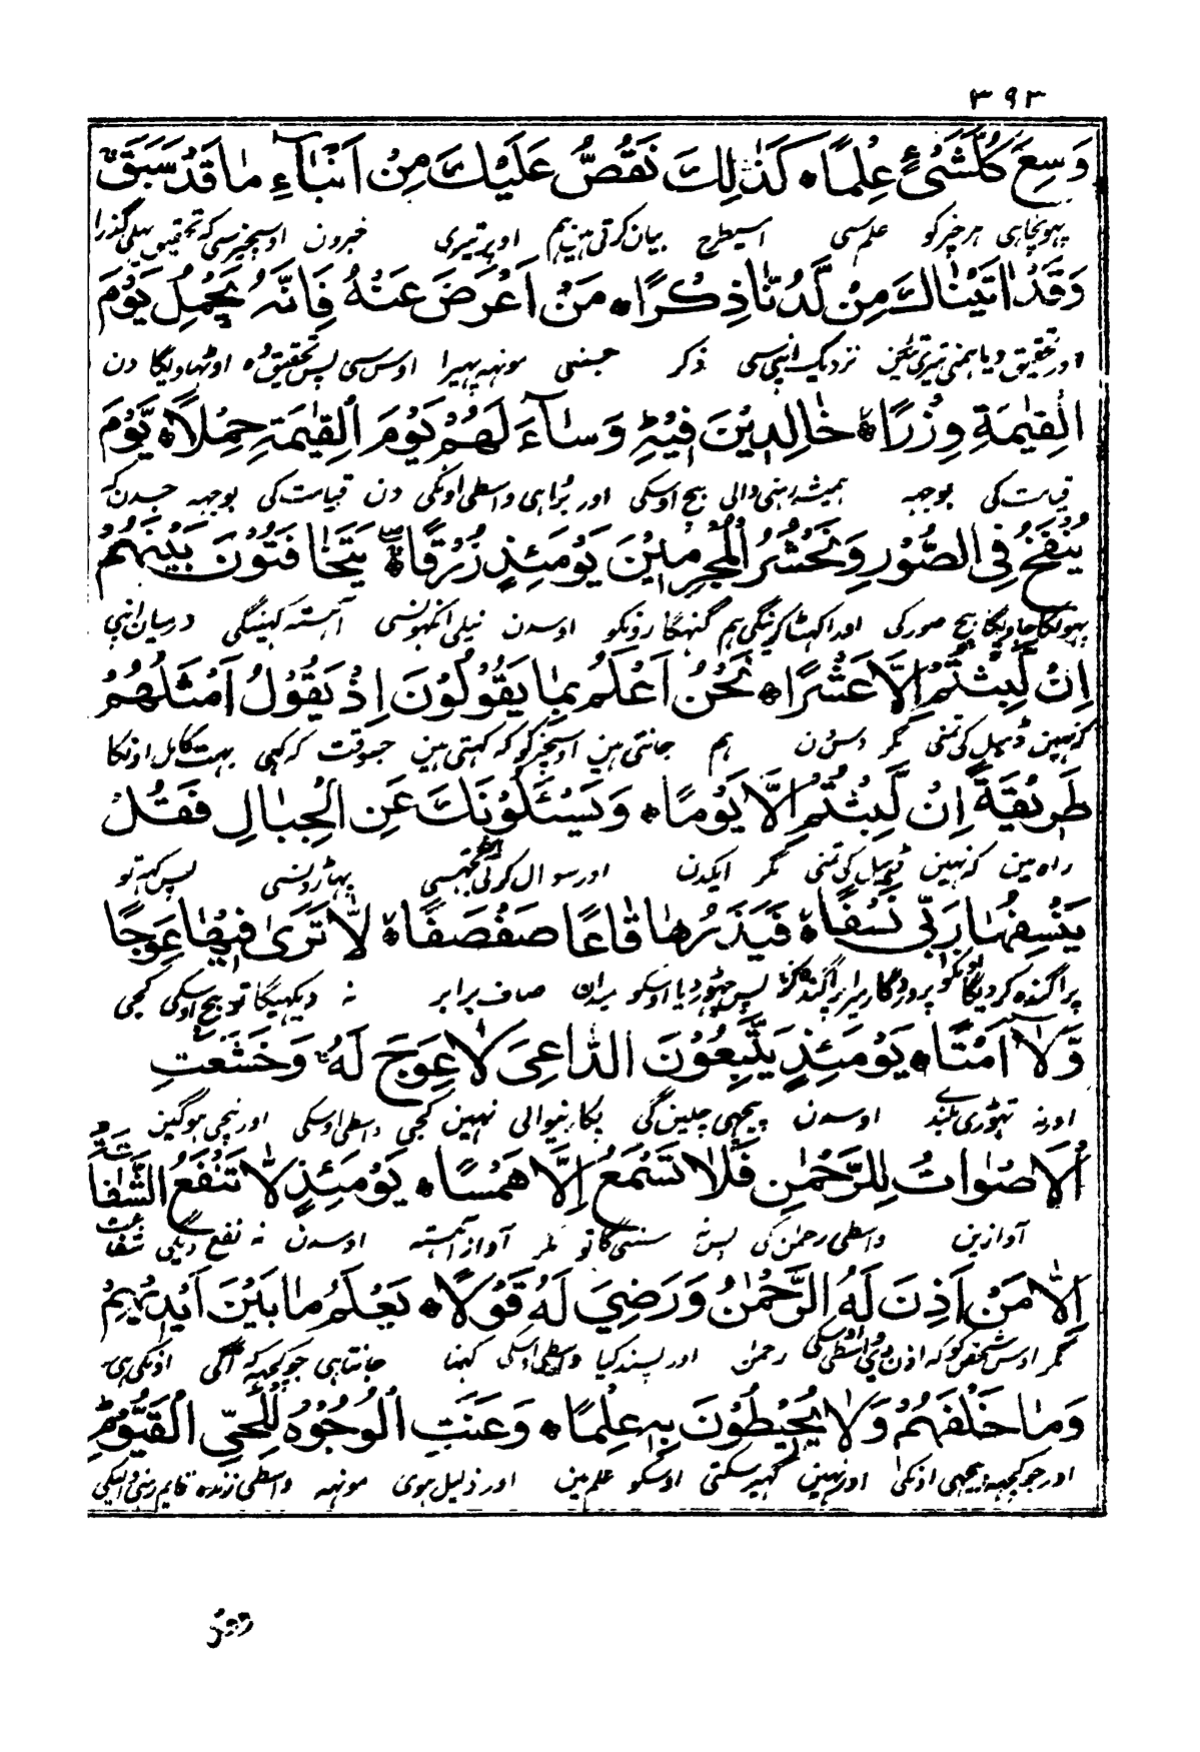 ۳۹۳
وَسِعَ كُلَّ شَىْءٍ عِلْمًا ه كَذٰلِكَ نَقُصُّ عَلَيْكَ مِنْ اَنْۢبَآءِ مَا قَدْ سَبَقَ ۚ
پہونچاہی ہر چیز کو علم سی اسیطرح بیان کرتی ہین ہم اوپر تیری خبرون اوسچیز سی کہ تحقیق پہلی گذرا
وَقَدْ اٰتَيْنٰكَ مِنْ لَّدُنَّا ذِكْرًا ه مَنْ اَعْرَضَ عَنْهُ فَاِنَّهٗ يَحْمِلُ يَوْمَ
اور تحقیق دیا ہمنی تیری تئین نزدیک اپنی سی ذکر جسنی مونہہ پہیرا اوس سی پس تحقیق وہ اوٹھاویگا دن
الْقِيٰمَةِ وِزْرًا ه خٰلِدِيْنَ فِيْهِ وَسَآءَ لَهُمْ يَوْمَ الْقِيٰمَةِ حِمْلًا ه يَّوْمَ
قیامت کی بوجہہ ہمیشہ رہنی والی بیچ اوسکی اور بُرا ہی واسطی اونکی دن قیامت کی بوجہہ جسدن کہ
يُنْفَخُ فِى الصُّوْرِ وَنَحْشُرُ الْمُجْرِمِيْنَ يَوْمَئِذٍ زُرْقًا ه يَّتَخَافَتُوْنَ بَيْنَهُمْ
پہونکا جاویگا بیچ صور کی اور اکہٹا کرینگی ہم گنہگارونکو اوسدن نیلی انکہونسی آہستہ کہینگی درمیان اپنی
اِنْ لَّبِثْتُمْ اِلَّا عَشْرًا ه نَحْنُ اَعْلَمُ بِمَا يَقُوْلُوْنَ اِذْ يَقُوْلُ اَمْثَلُهُمْ
کہ نہین ڈہیل کی تمنی مگر دس دن ہم جانتی ہین اوسچیز کو کہ کہتی ہین جسوقت کہ کہی بہت کامل اونکا
طَرِيْقَةً اِنْ لَّبِثْتُمْ اِلَّا يَوْمًا ه وَيَسْئَلُوْنَكَ عَنِ الْجِبَالِ فَقُلْ
راہ مین کہ نہین ڈہیل کی تمنی مگر ایکدن اور سوال کرتی تجہسی پہاڑونسی پس کہہ تو
يَنْسِفُهَا رَبِّىْ نَسْفًا ه فَيَذَرُهَا قَاعًا صَفْصَفًا ه لَّا تَرٰى فِيْهَا عِوَجًا
پراگندہ کردیگا اونکو پروردگار میرا پراگندہ کرنا پس چہوڑدیگا اوسکو میدان صاف برابر نہ دیکہیگا تو بیچ اوسکی کجی
وَّلَآ اَمْتًا ه يَوْمَئِذٍ يَّتَّبِعُوْنَ الدَّاعِىَ لَا عِوَجَ لَهٗ ۚ وَخَشَعَتِ
اورنہ تہوڑی بلند اوسدن پیچہی چلین گی پکارنیوالی نہین کجی واسطی اوسکی اور نچی ہوگین
الْاَصْوَاتُ لِلرَّحْمٰنِ فَلَا تَسْمَعُ اِلَّا هَمْسًا ه يَوْمَئِذٍ لَّا تَنْفَعُ الشَّفَاعَةُ
آوازین واسطی رحمٰن کی پس نہ سنیگا تو مگر آواز آہستہ اوسدن نہ نفع دیگی شفاعت
اِلَّا مَنْ اَذِنَ لَهُ الرَّحْمٰنُ وَرَضِىَ لَهٗ قَوْلًا ه يَعْلَمُ مَا بَيْنَ اَيْدِيْهِمْ
مگر اوس شخص کو کہ اذن دی واسطی اوسکی رحمٰن اور پسند کیا واسطی اوسکی کہنا جانتا ہی جو کچہہ کہ آگی اونکی ہی
وَمَا خَلْفَهُمْ وَلَا يُحِيْطُوْنَ بِهٖ عِلْمًا ه وَعَنَتِ الْوُجُوْهُ لِلْحَىِّ الْقَيُّوْمِ ؕ
اور جو کچہہ پیچہی اونکی اور نہین گہیر سکتی اوسکو علم مین اور ذلیل ہوی مونہہ واسطی زندہ قایم رہنی والیکی